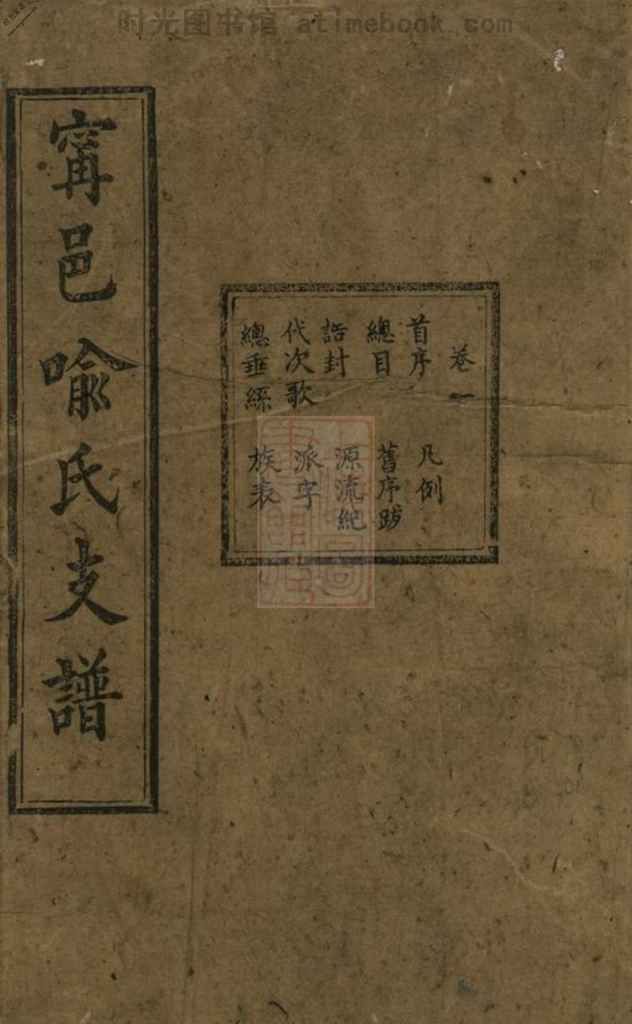 时光图书馆 atimebook.com
卷一
首序 凡例
總目 舊序跋
誥封 源流紀
代次歌 派字
總垂絲 族表
甯邑喻氏支譜